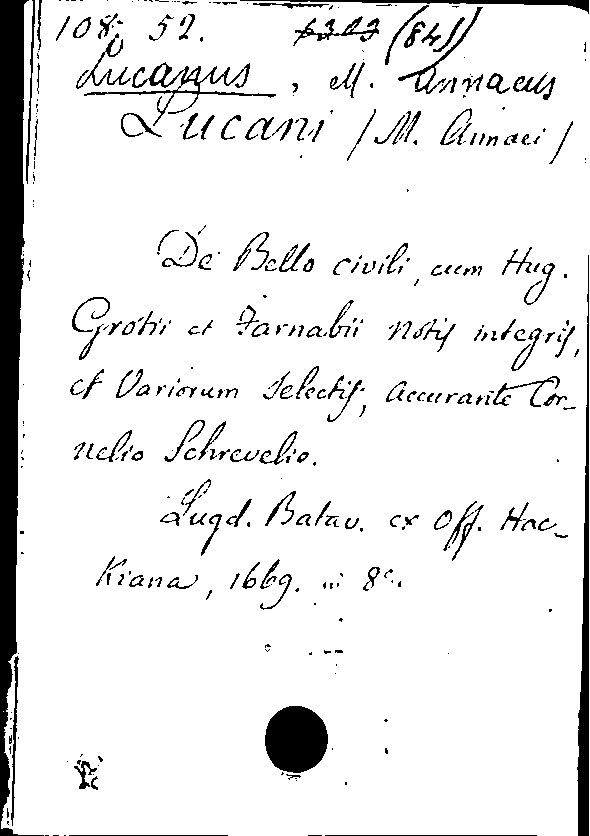 108, 52. (841)
Lucanus, M. Annaeus
Lucani / M. Annaei /
De Bello civili, cum Hug.
Grotii et Farnabii Notis integris,
et Variorum Selectis, accurante Cor-
nelio Schrevelio.
Lugd. Batav. ex Off. Hac-
kiana, 1669. in 8º.